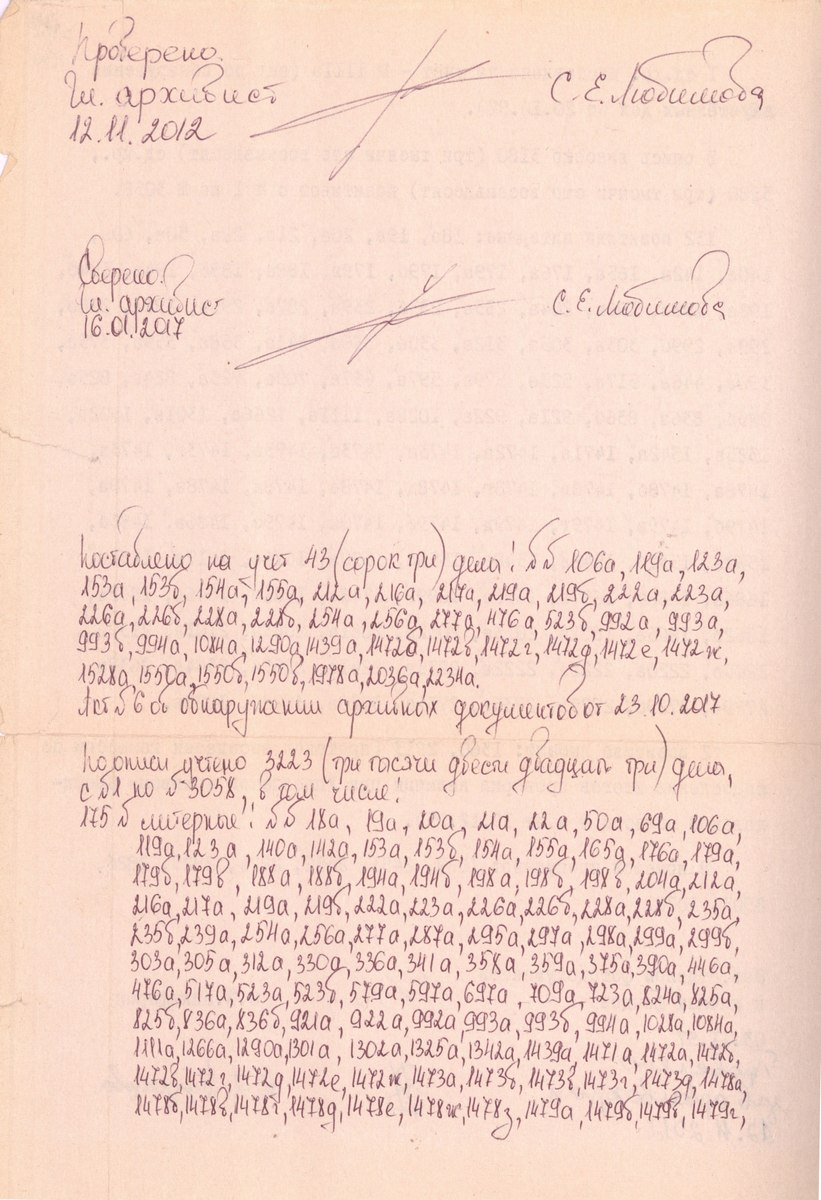 Проверено.
Гл. архивист
С. Е. Любимова
12.11.2012
Сверено.
Гл. архивист
С. Е. Любимова
16.01.2017
Поставлено на учет 43 (сорок три) дела: №№ 106а, 119а, 123а,
153а, 153б, 154а, 155а, 212а, 216а, 217а, 219а, 219б, 222а, 223а,
226а, 226б, 228а, 228б, 254а, 256а, 277а, 476а, 523б, 992а, 993а,
993б, 994а, 1084а, 1290а, 1439а, 1472б, 1472в, 1472г, 1472д, 1472е, 1472ж,
1528а, 1550а, 1550б, 1550в, 1978а, 2036а, 2234а.
Акт № 6 об обнаружении архивных документов от 23.10.2017
По описи учтено 3223 (три тысячи двести двадцать три) дела,
с № 1 по № 3058, в том числе:
175 № литерные: №№ 18а, 19а, 20а, 21а, 22а, 50а, 69а, 106а,
119а, 123а, 140а, 142а, 153а, 153б, 154а, 155а, 165а, 176а, 179а,
179б, 179в, 188а, 188б, 194а, 194б, 198а, 198б, 198в, 204а, 212а,
216а, 217а, 219а, 219б, 222а, 223а, 226а, 226б, 228а, 228б, 235а,
235б, 239а, 254а, 256а, 277а, 287а, 295а, 297а, 298а, 299а, 299б,
303а, 305а, 312а, 330а, 336а, 341а, 358а, 359а, 375а, 390а, 446а,
476а, 517а, 523а, 523б, 579а, 597а, 697а, 709а, 723а, 824а, 825а,
825б, 836а, 836б, 921а, 922а, 992а, 993а, 993б, 994а, 1028а, 1084а,
1111а, 1266а, 1290а, 1301а, 1302а, 1325а, 1342а, 1439а, 1471а, 1472а, 1472б,
1472в, 1472г, 1472д, 1472е, 1472ж, 1473а, 1473б, 1473в, 1473г, 1473д, 1478а,
1478б, 1478в, 1478г, 1478д, 1478е, 1478ж, 1478з, 1479а, 1479б, 1479в, 1479г,